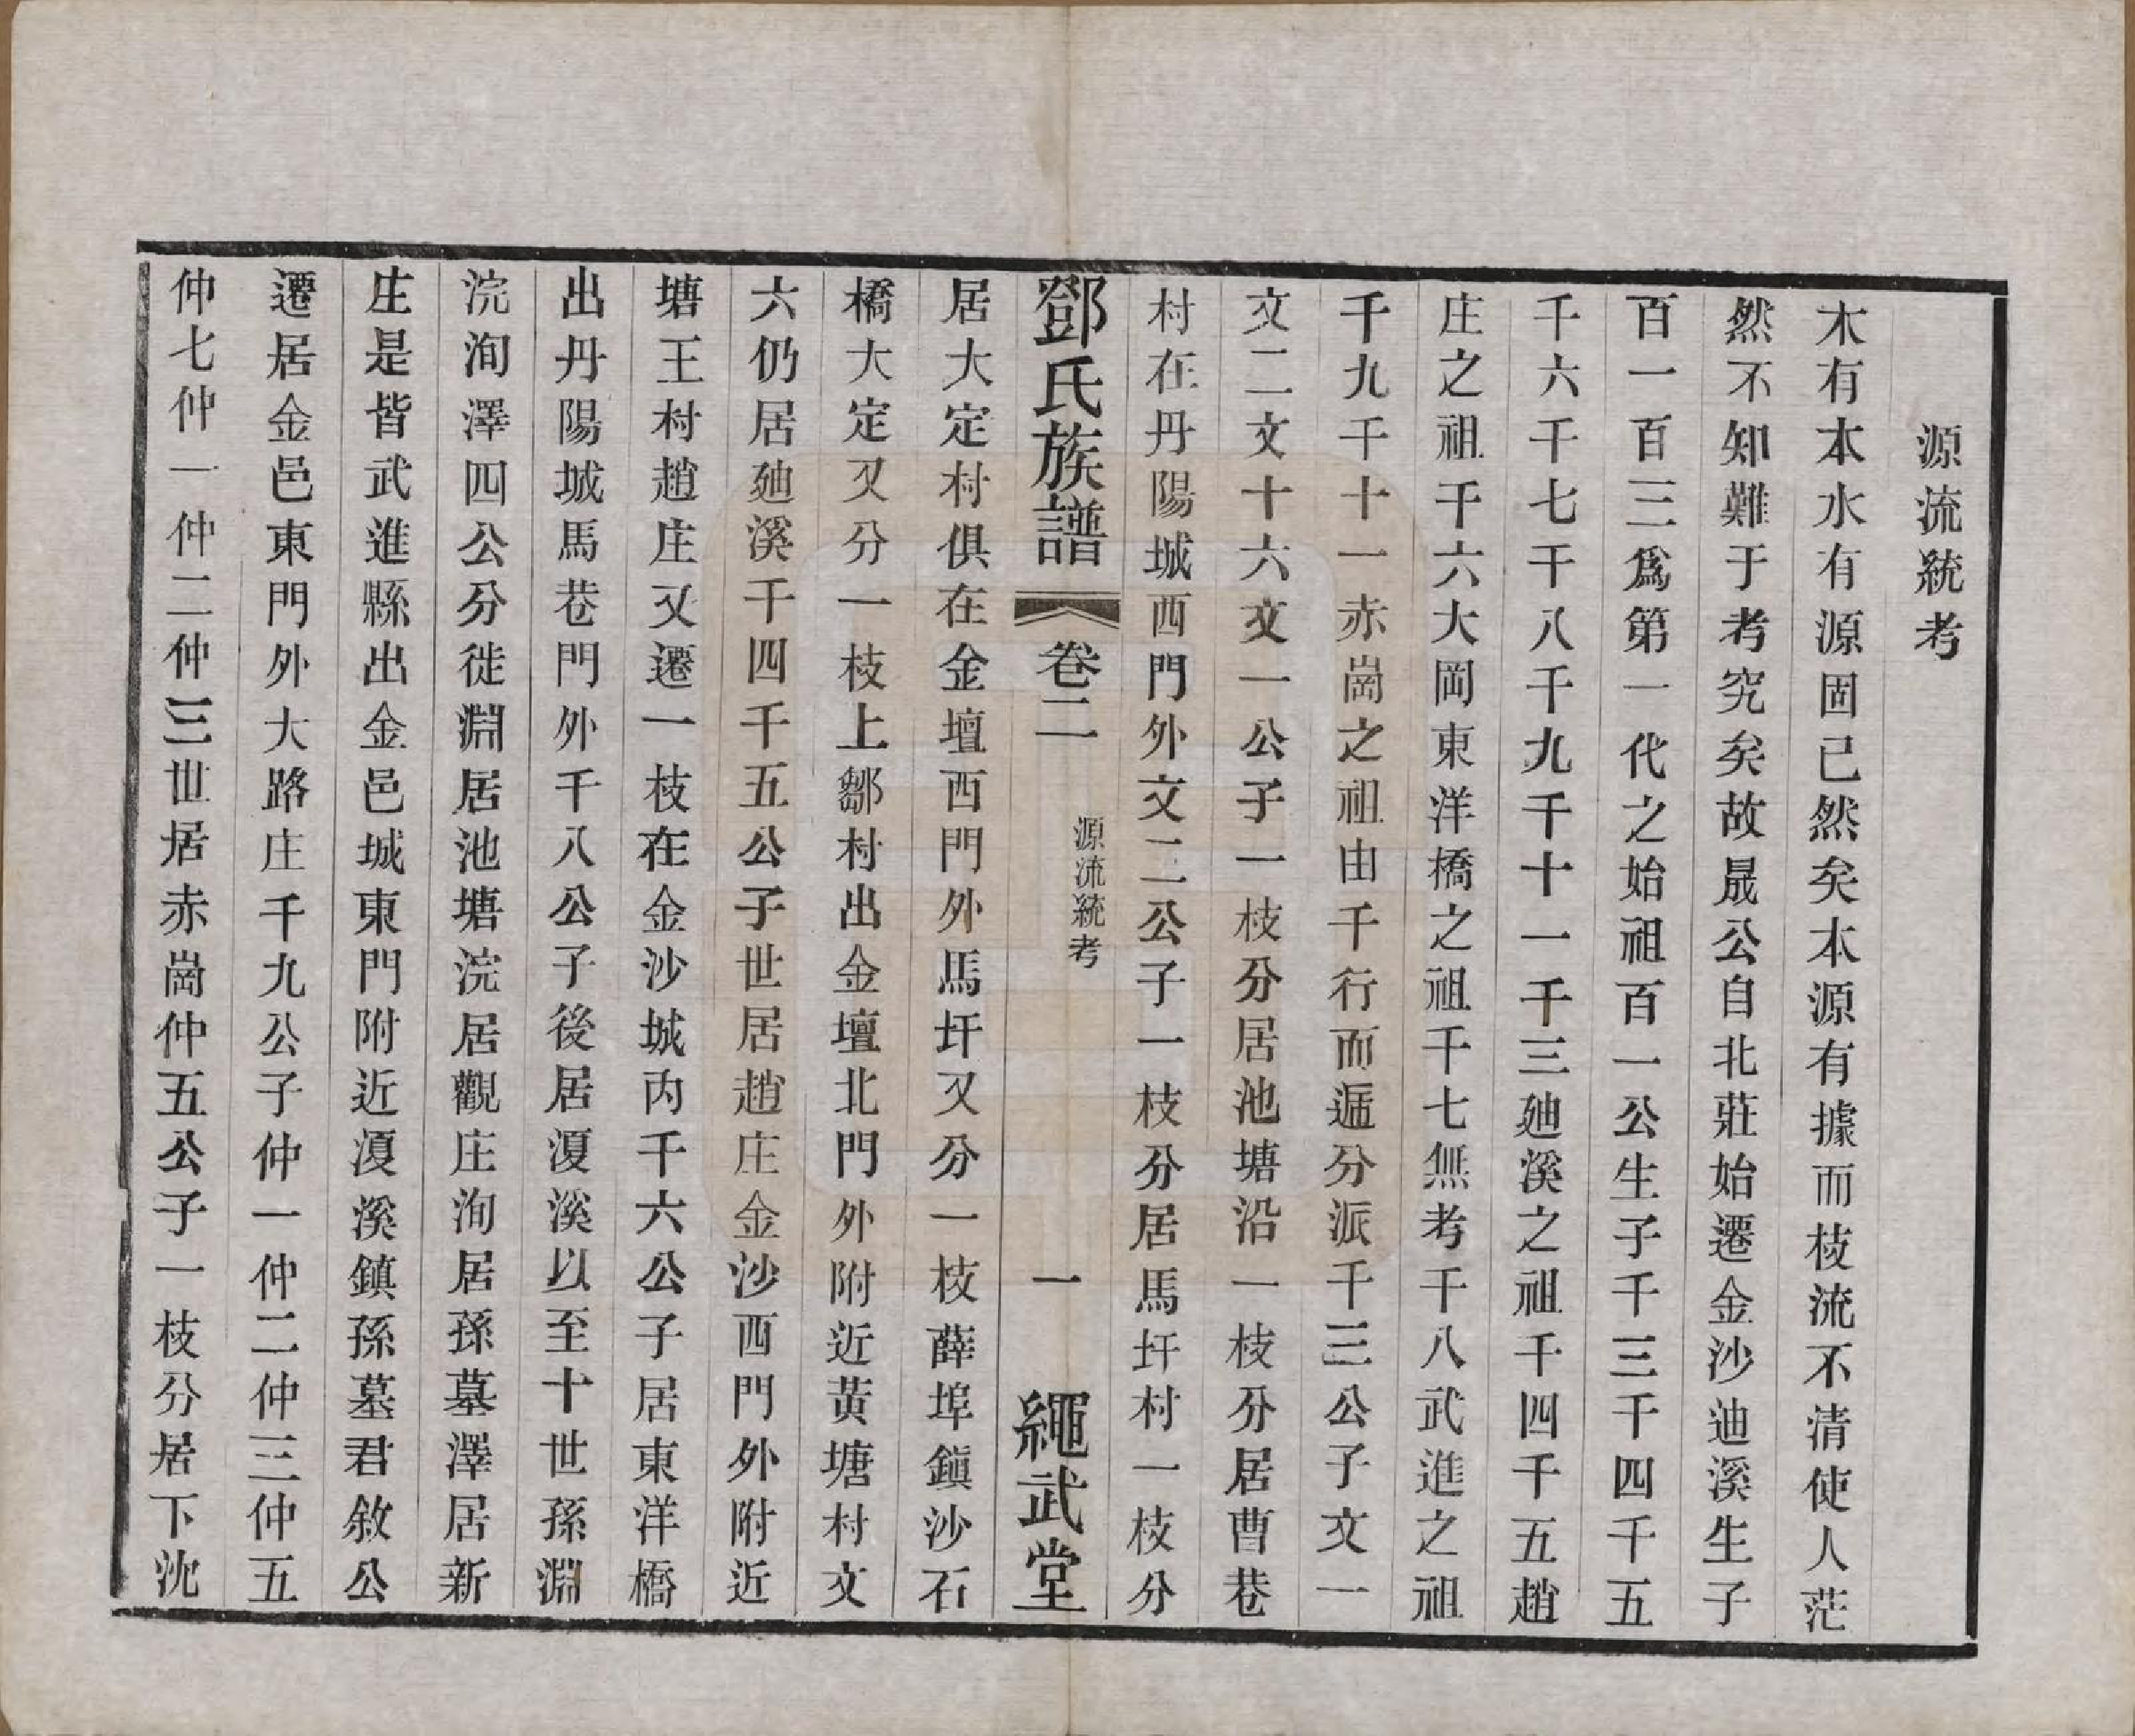 源流統考
木有本水有源固已然矣本源有據而枝流不清使人茫
然不知難于考究矣故晟公自北莊始遷金沙迪溪生子
百一百三爲第一代之始祖百一公生子千三千四千五
千六千七千八千九千十一千三廸溪之祖千四千五趙
庄之祖千六大岡東洋橋之祖千七無考千八武進之祖
千九千十一赤崗之祖由千行而遞分派千三公子文一
文二文十六文一公子一枝分居池塘沿一枝分居曹巷
村在丹陽城西門外文二公子一枝分居馬圩村一枝分
鄧氏族譜 卷二 源流統考 一 繩武堂
居大定村俱在金壇西門外馬圩又分一枝薛埠鎭沙石
橋大定又分一枝上鄒村出金壇北門外附近黃塘村文
六仍居廸溪千四千五公子世居趙庄金沙西門外附近
塘王村趙庄又遷一枝在金沙城內千六公子居東洋橋
出丹陽城馬巷門外千八公子後居溭溪以至十世孫淵
浣洵澤四公分徙淵居池塘浣居觀庄洵居孫墓澤居新
庄是皆武進縣出金邑城東門附近溭溪鎮孫墓君敘公
遷居金邑東門外大路庄千九公子仲一仲二仲三仲五
仲七仲一仲二仲三世居赤崗仲五公子一枝分居下沈